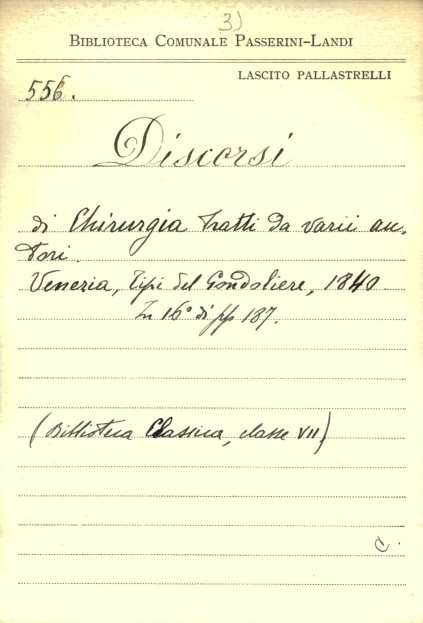 3)
BIBLIOTECA COMUNALE PASSERINI-LANDI
LASCITO PALLASTRELLI
556.
Discorsi
di Chirurgia tratti da varii au-
tori.
Venezia, Tipi del Gondoliere, 1840
In 16° di pp 187.
(Biblioteca Classica, classe VII)
C.